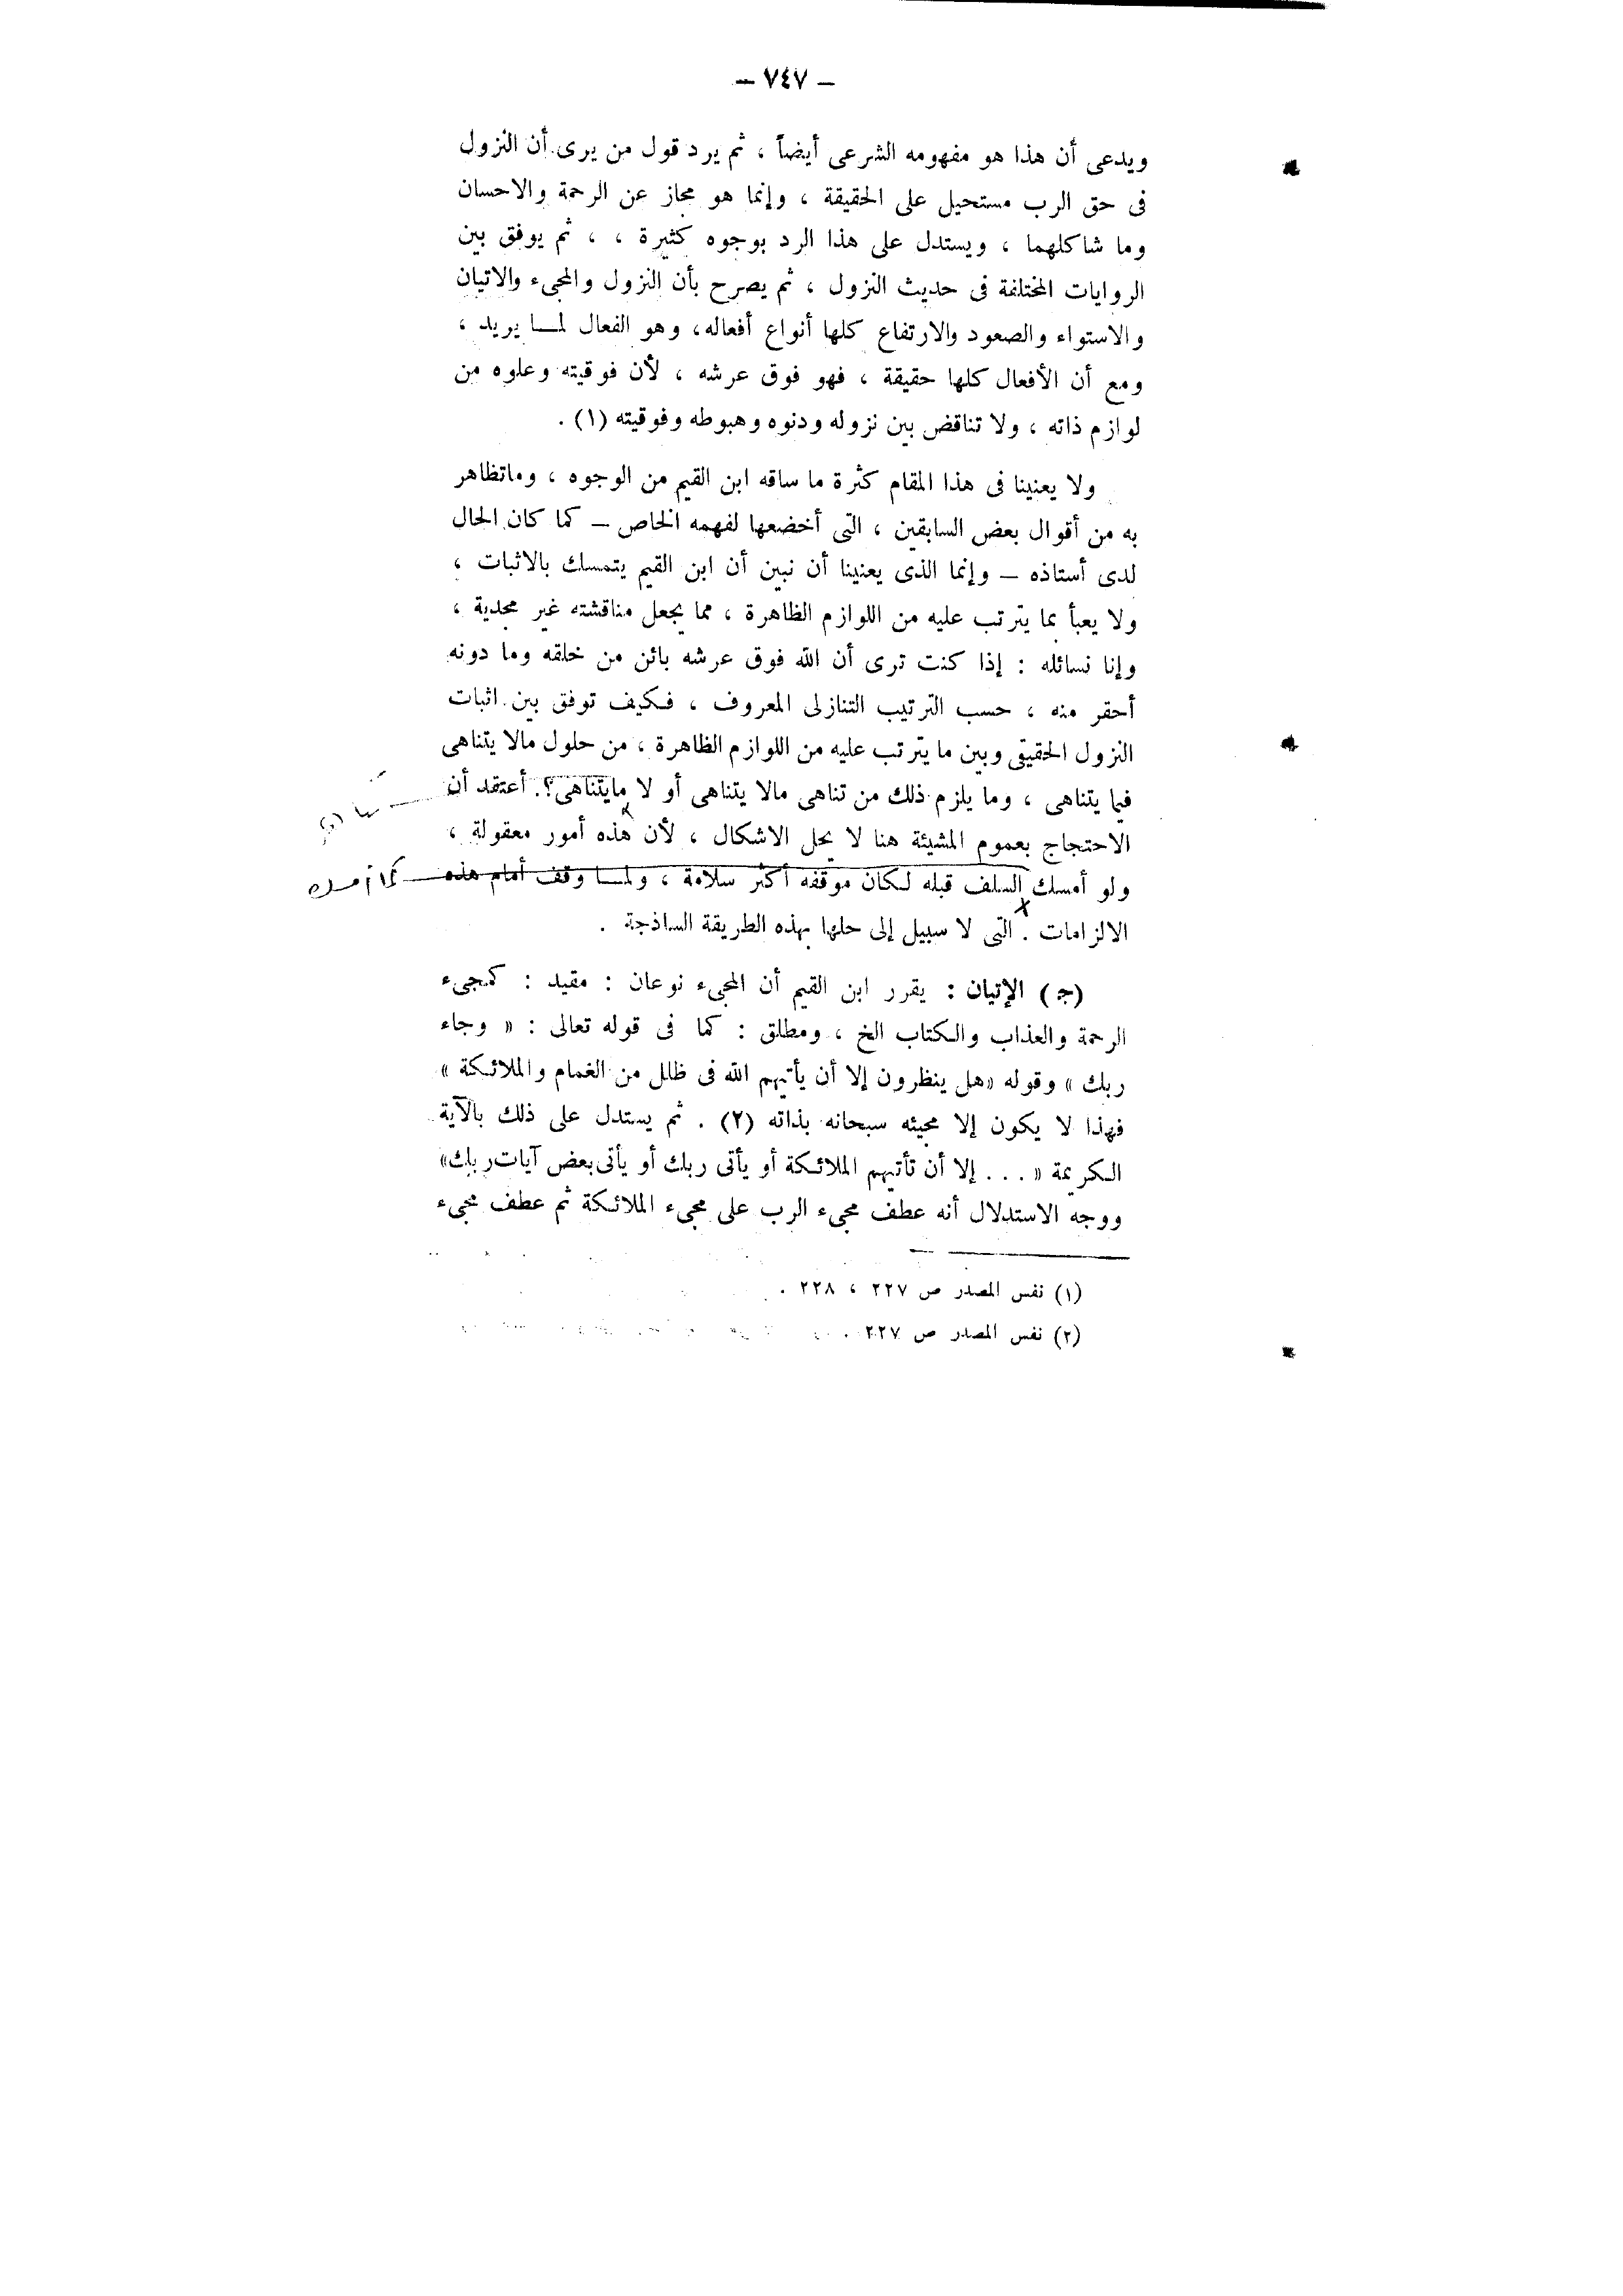 — ٧٤٧ —
ويدعى أن هذا هو مفهومه الشرعى أيضاً ، ثم يرد قول من يرى أن النزول
فى حق الرب مستحيل على الحقيقة ، وإنما هو مجاز عن الرحمة والاحسان
وما شاكلهما ، ويستدل على هذا الرد بوجوه كثيرة ، ، ثم يوفق بين
الروايات المختلفة فى حديث النزول ، ثم يصرح بأن النزول والمجىء والاتيان
والاستواء والصعود والارتفاع كلها أنواع أفعاله، وهو الفعال لمــا يريد ،
ومع أن الأفعال كلها حقيقة ، فهو فوق عرشه ، لأن فوقيته وعلوه من
لوازم ذاته ، ولا تناقض بين نزوله ودنوه وهبوطه وفوقيته (١) .
ولا يعنينا فى هذا المقام كثرة ما ساقه ابن القيم من الوجوه ، وماتظاهر
به من أقوال بعض السابقين ، التى أخضعها لفهمه الخاص – كما كان الحال
لدى أستاذه – وإنما الذى يعنينا أن نبين أن ابن القيم يتمسك بالاثبات ،
ولا يعبأ بما يترتب عليه من اللوازم الظاهرة ، مما يجعل مناقشته غير مجدية ،
وإنا نسائله : إذا كنت ترى أن الله فوق عرشه بائن من خلقه وما دونه
أحقر منه ، حسب الترتيب التنازلى المعروف ، فكيف توفق بين اثبات
النزول الحقيقى وبين ما يترتب عليه من اللوازم الظاهرة ، من حلول مالا يتناهى
فيما يتناهى ، وما يلزم ذلك من تناهى مالا يتناهى أو لا مايتناهى؟. أعتقد أن
الاحتجاج بعموم المشيئة هنا لا يحل الاشكال ، لأن هذه أمور معقولة ،
ولو أمسك السلف قبله لكان موقفه أكثر سلامة ، ولمــا وقف أمام هذه
كما أمسك
الالزامات . التى لا سبيل إلى حلها بهذه الطريقة الساذجة .
(ج) الإتيان : يقرر ابن القيم أن المجىء نوعان : مقيد : كمجىء
الرحمة والعذاب والكتاب الخ ، ومطلق : كما فى قوله تعالى : « وجاء
ربك » وقوله «هل ينظرون إلا أن يأتيهم الله فى ظلل من الغمام والملائكة »
فهذا لا يكون إلا مجيئه سبحانه بذاته (٢) . ثم يستدل على ذلك بالآية
الكريمة « . . . إلا أن تأتيهم الملائكة أو يأتى ربك أو يأتى بعض آيات ربك»
ووجه الاستدلال أنه عطف مجىء الرب على مجىء الملائكة ثم عطف مجىء
(١) نفس المصدر ص ٢٢٧ ، ٢٢٨ .
(٢) نفس المصدر ص ٢٢٧ .